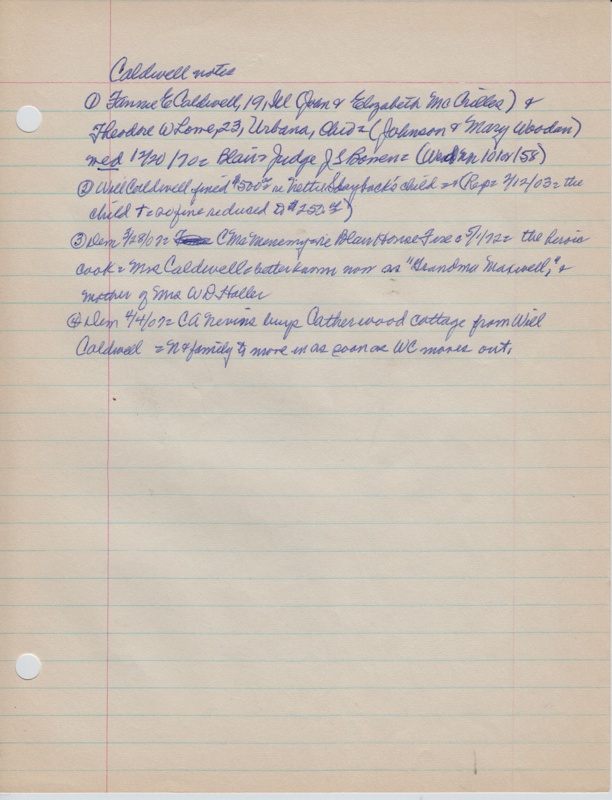 Caldwell notes
① Fannie E Caldwell, 19, Ill (Jean & Elizabeth McCrilles) &
Theodore W Lowe, 23, Urbana, Ohio = (Johnson & Mary Wooden)
med 12/20/70 = Blair = Judge J S Bowen = (Wed En 10101/58)
② Will Caldwell fined $500 in Nettie Shayback's child = (Rep = 2/12/03 = the
child + = so fine reduced to $250)
③ Dem 3/28/07 = C McMenemy = re Blair House Fire = 5/1/72 = the heroic
cook = Mrs Caldwell = better known now as "Grandma Maxwell," &
mother of Mrs W D Haller
④ Dem 4/4/07 = C A Nevins buys Catherwood cottage from Will
Caldwell = N & family to move in as soon as WC moves out.